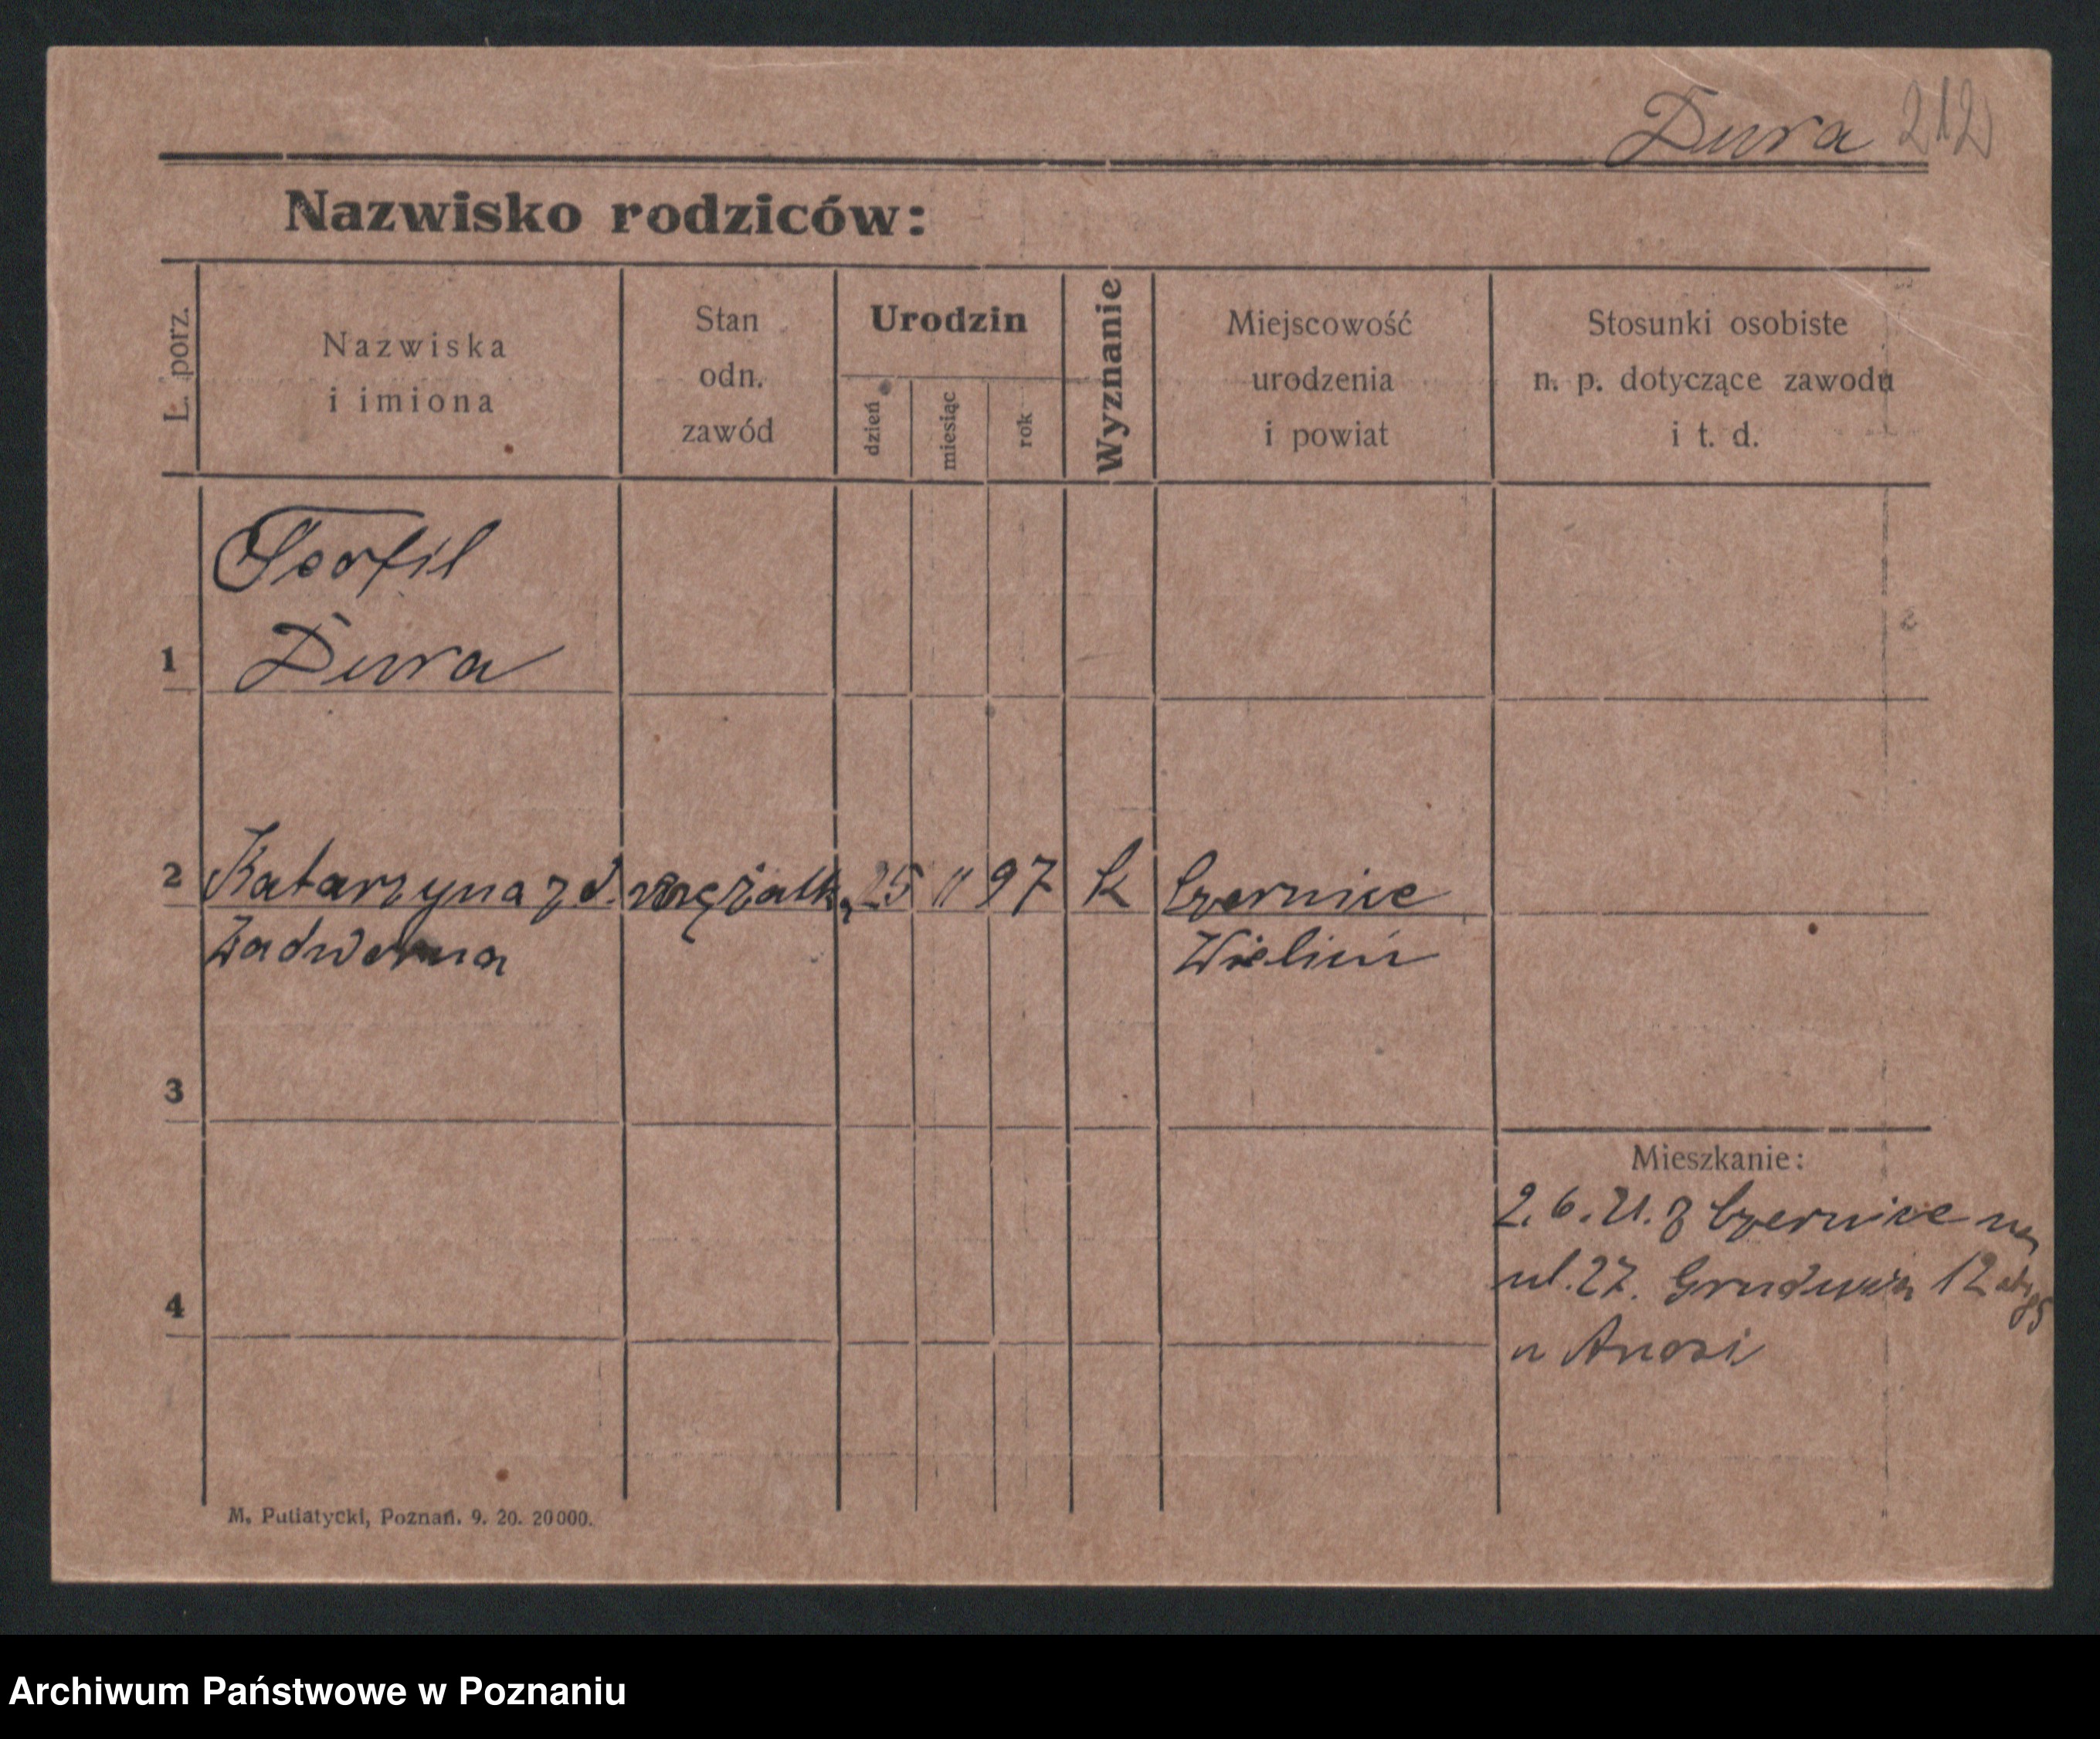 Dura 212
Nazwisko rodziców:
L. porz.
Nazwiska
i imiona
Stan
odn.
zawód
Urodzin
dzień
miesiąc
rok
Wyznanie
Miejscowość
urodzenia
i powiat
Stosunki osobiste
n. p. dotyczące zawodu
i t. d.
Teofil
Dura
1
2 Katarzyna z d. mężatk. 25 11 97 k Czernice
Wieluń
3
Mieszkanie:
2. 6. 21. z Czernice na
ul. 27. Grudnia 12
4
u
M. Putiatycki, Poznań. 9. 20. 20000.
Archiwum Państwowe w Poznaniu